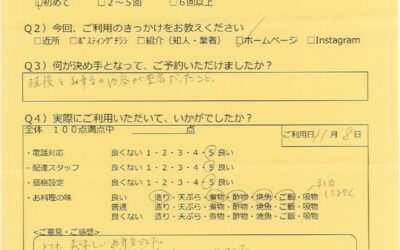 初めて □2～5回 □6回以上
Q2）今回、ご利用のきっかけをお教えください
□近所 □ポスティングチラシ □紹介（知人・業者） ☑ホームページ □Instagram
Q3）何が決め手となって、ご予約いただけましたか？
Q4）実際にご利用いただいて、いかがでしたか？
全体 100点満点中 点
ご利用日 11月8日
・電話対応 良くない 1・2・3・4・5 良い
・配達スタッフ 良くない 1・2・3・4・5 良い
・価格設定 良くない 1・2・3・4・5 良い
・お料理の味 良い 造り・天ぷら・煮物・酢物・焼魚・ご飯・吸物
普通 造り・天ぷら・煮物・酢物・焼魚・ご飯・吸物
良くない 造り・天ぷら・煮物・酢物・焼魚・ご飯・吸物
＜ご意見・ご感想＞
とても美味しいお弁当でした